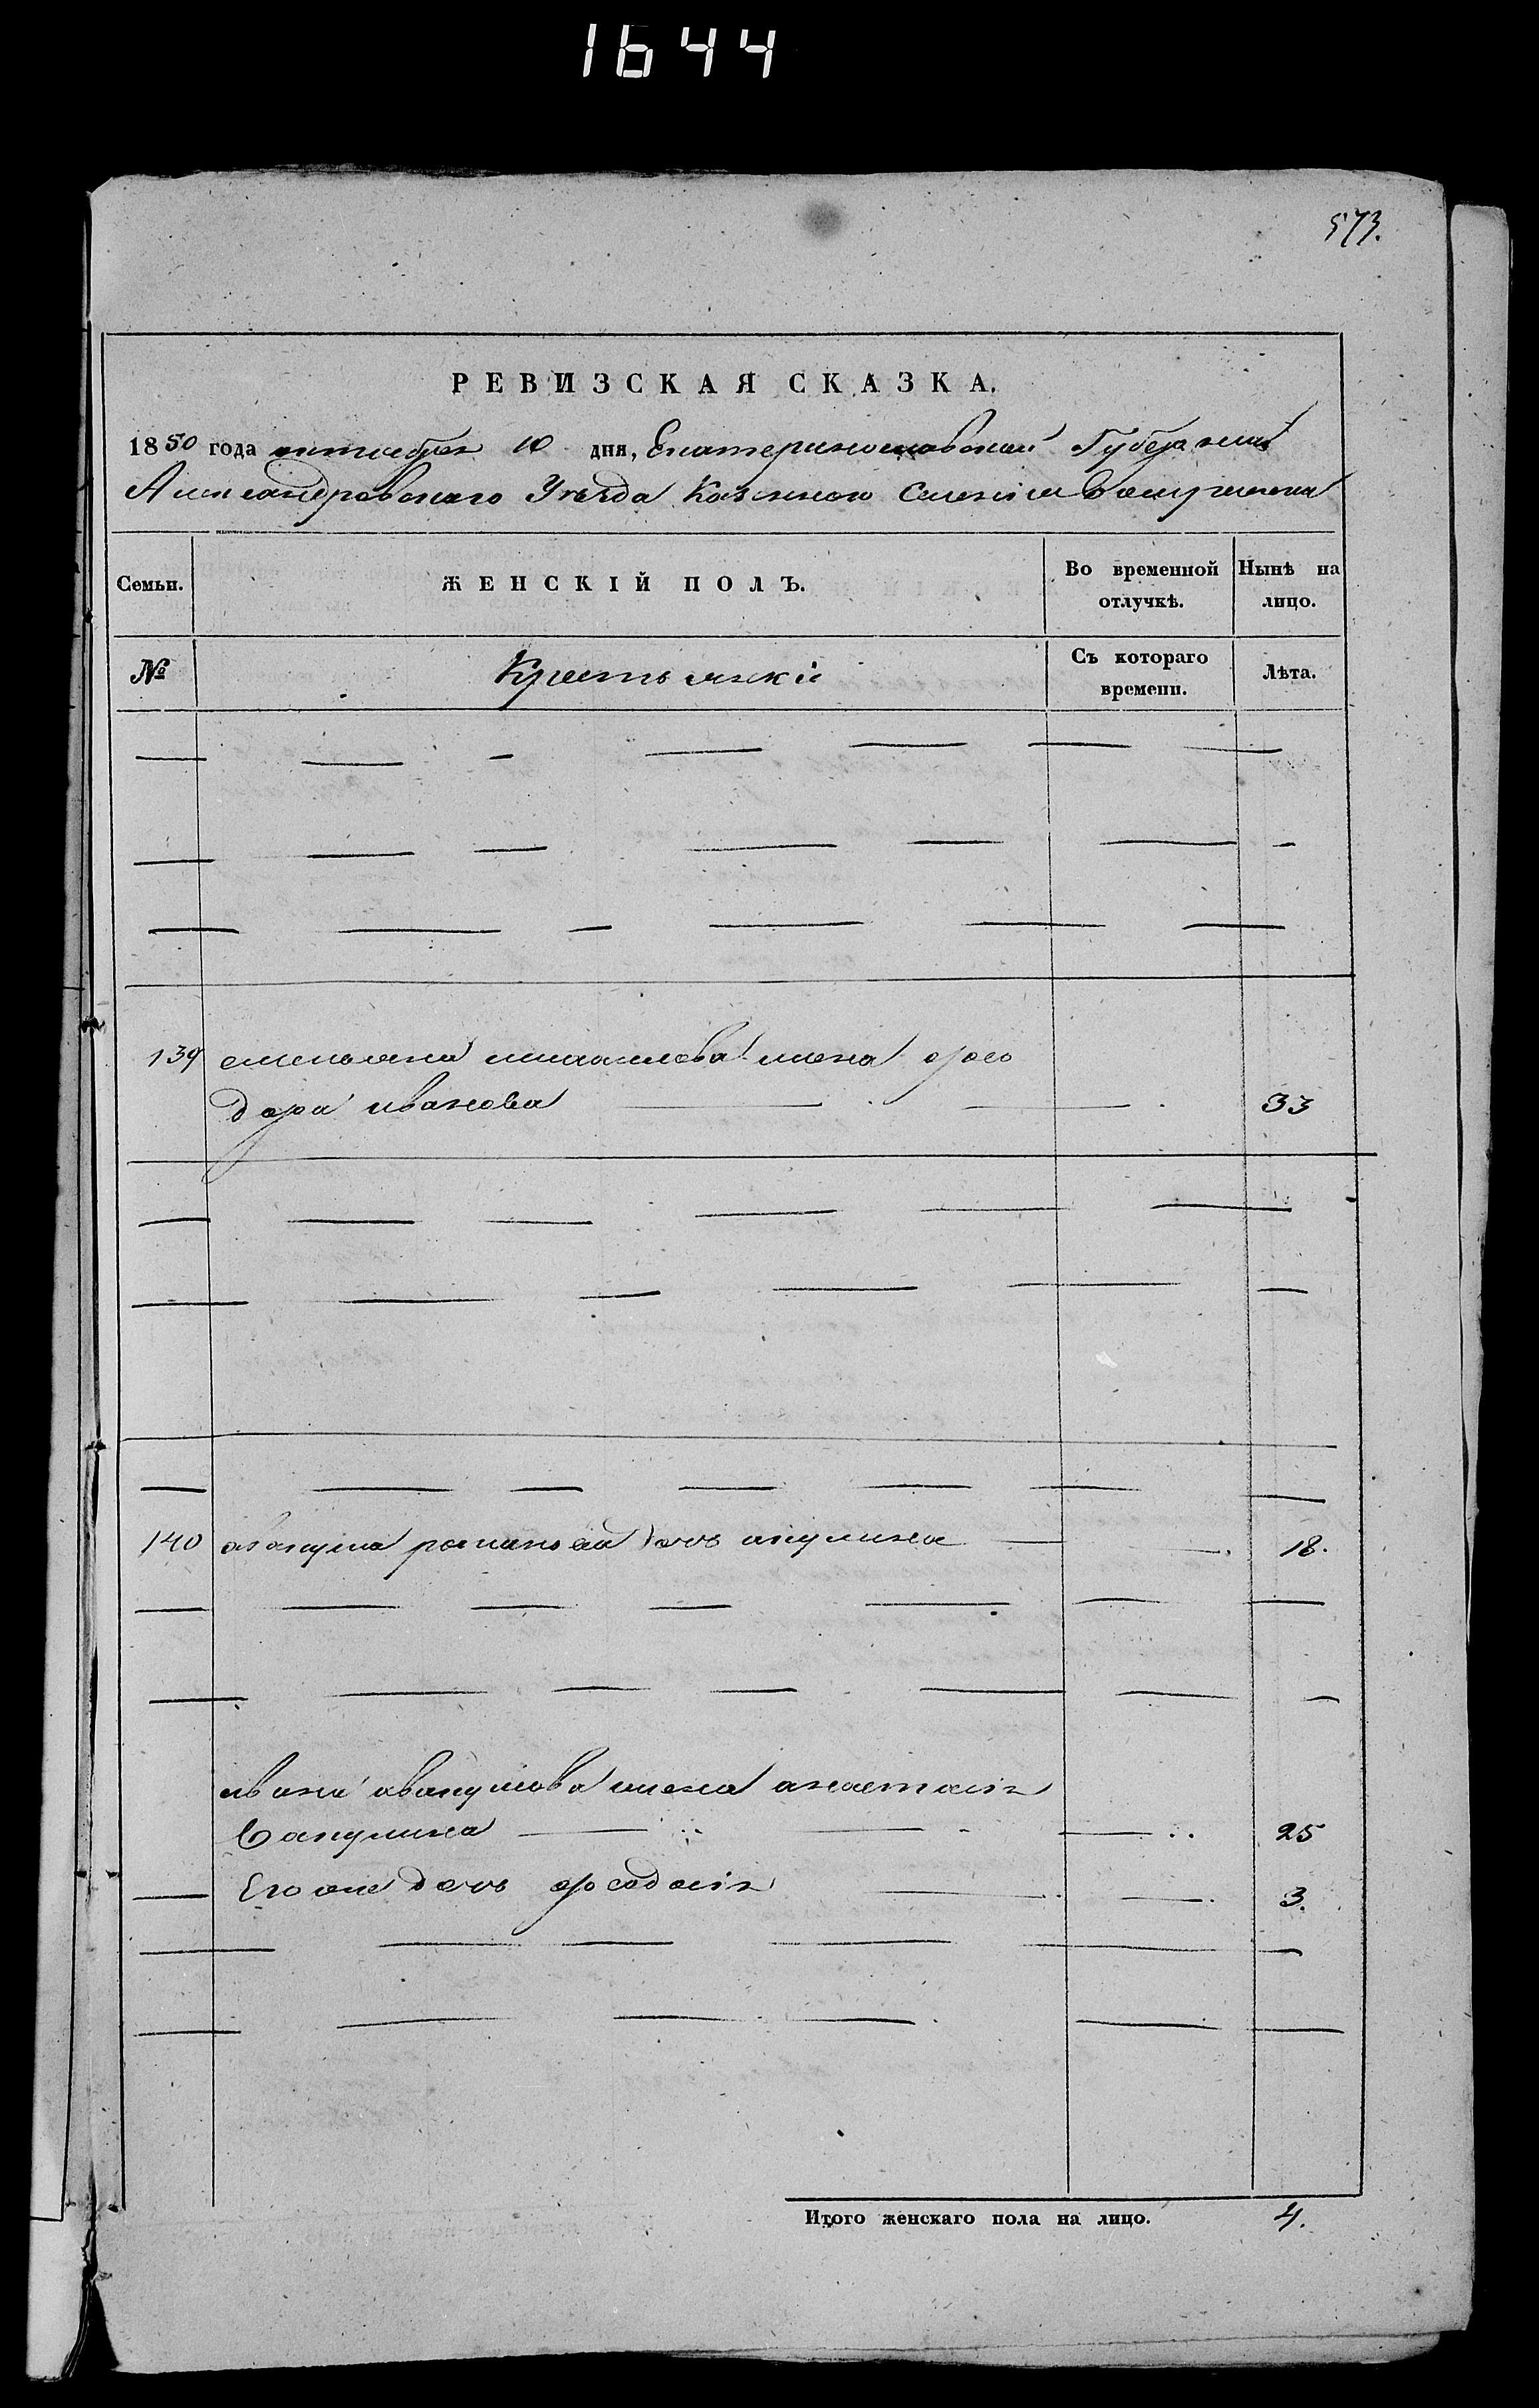 1644
573.
РЕВИЗСКАЯ СКАЗКА.
1850 года октября 10 дня, Екатеринославской Губернии
Александровскаго Уезда Казенного Селения
Семьи. ЖЕНСКІЙ ПОЛЪ. Во временной отлучкѣ. Нынѣ на лицо.
№ Крестьянки Съ котораго времени. Лѣта.
139 михайлова жена фео
дора иванова 33
140 авакума романова дочь акулина 18.
ивана авакумова жена анастасія
вакулина 25
Его же дочь феодосія 3.
Итого женскаго пола на лицо. 4.